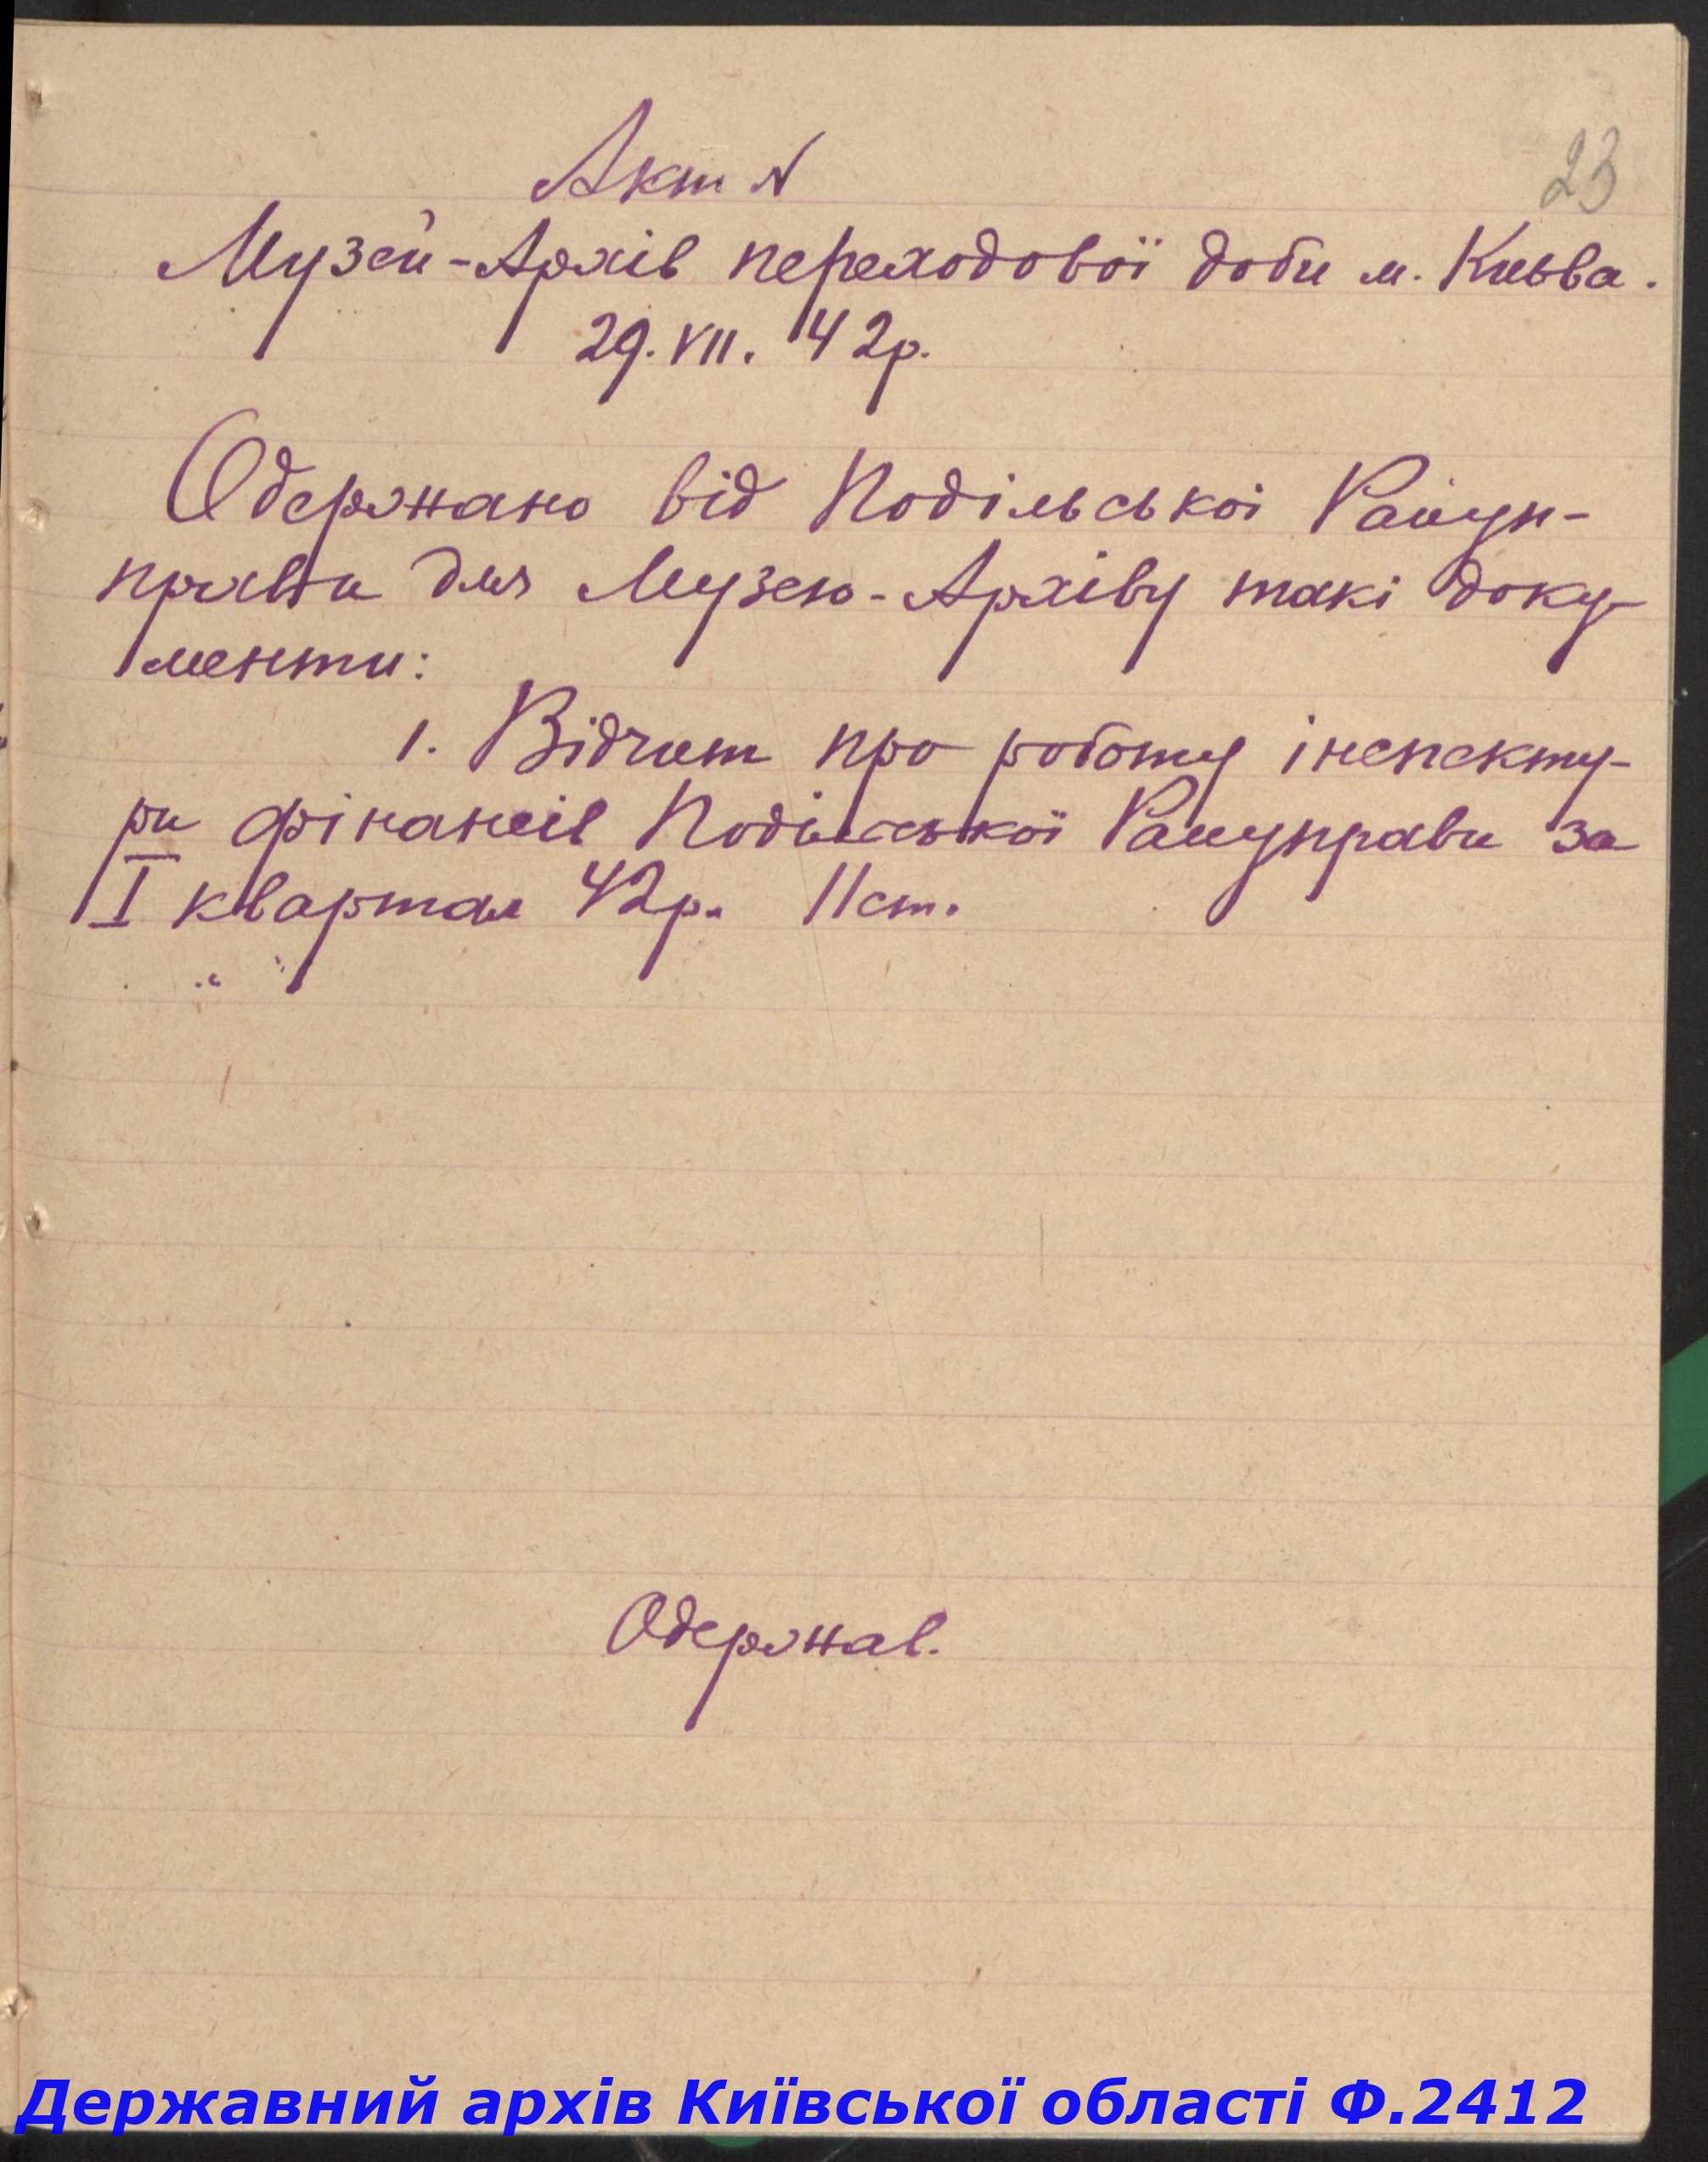 23
Акт №
Музей-Архів переходової доби м. Києва.
29.VII.42р.
Одержано від Подільської Райуп-
прави для Музею-Архіву такі доку-
менти:
1. Відчит про роботу інспекту-
ри фінансів Подільської Райуправи за
I квартал 42р. 11ст.
Одержав.
Державний архів Київської області Ф.2412